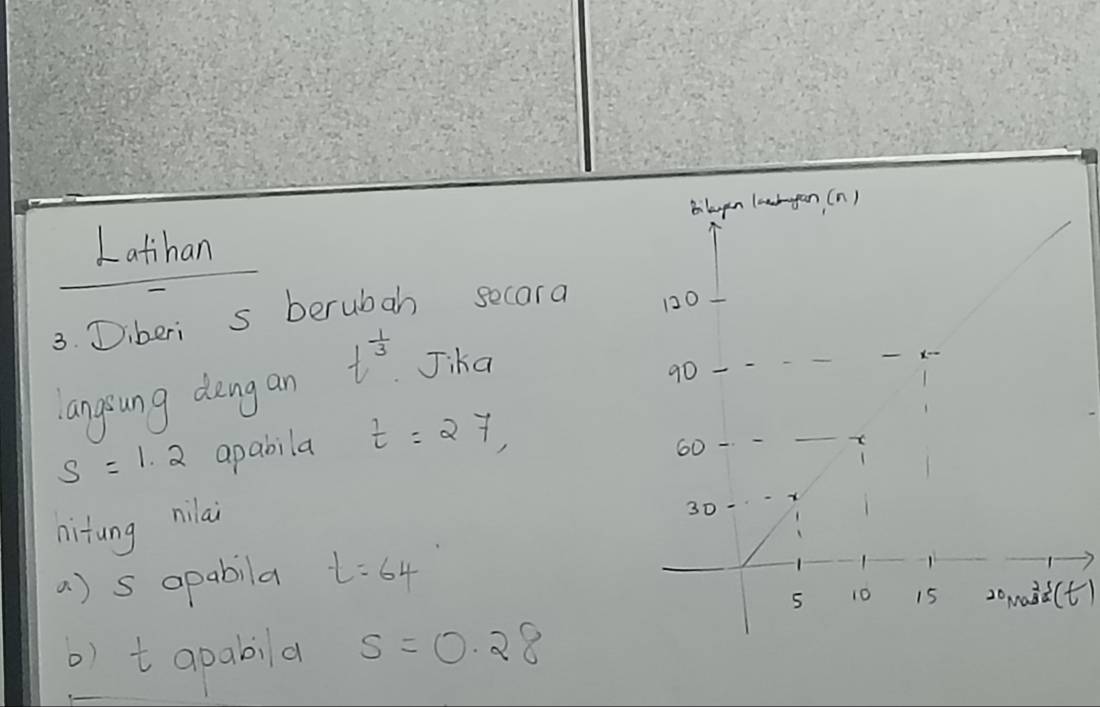 Latihan
3. Diberi s berubah secara
langsung dengan t^(1/3). Jika
s = 1.2 apabila t = 27,
hitung nilai
a) s apabila t = 64
b) t apabila s = 0.28
(n)
120
90
60
30
5 10 15 20
(t)